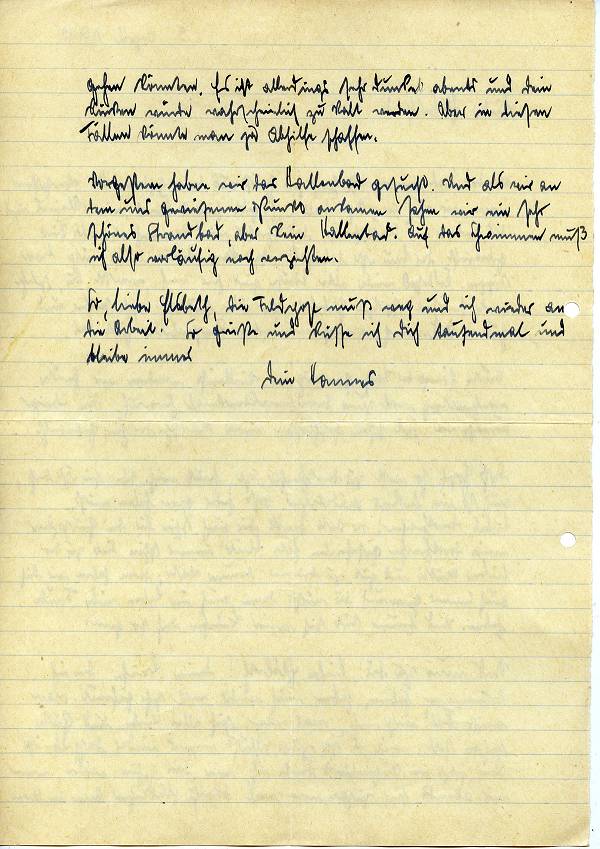 gehen könnten. Es ist allerdings sehr dunkel abends und dein
Rücken würde wahrscheinlich zu kalt werden. Aber in diesen
Fällen könnte man ja Abhilfe schaffen.
Vorgestern haben wir das Hallenbad gesucht. Und als wir an
dem uns gewiesenen Punkt ankamen sahen wir ein sehr
schönes Strandbad, aber kein Hallenbad. Auf das Schwimmen muß
ich also vorläufig noch verzichten.
So, liebe Elsbeth, die Feldpost muß weg und ich wieder an
die Arbeit. So grüße und küsse ich Dich tausendmal und
bleibe immer
Dein Hannes